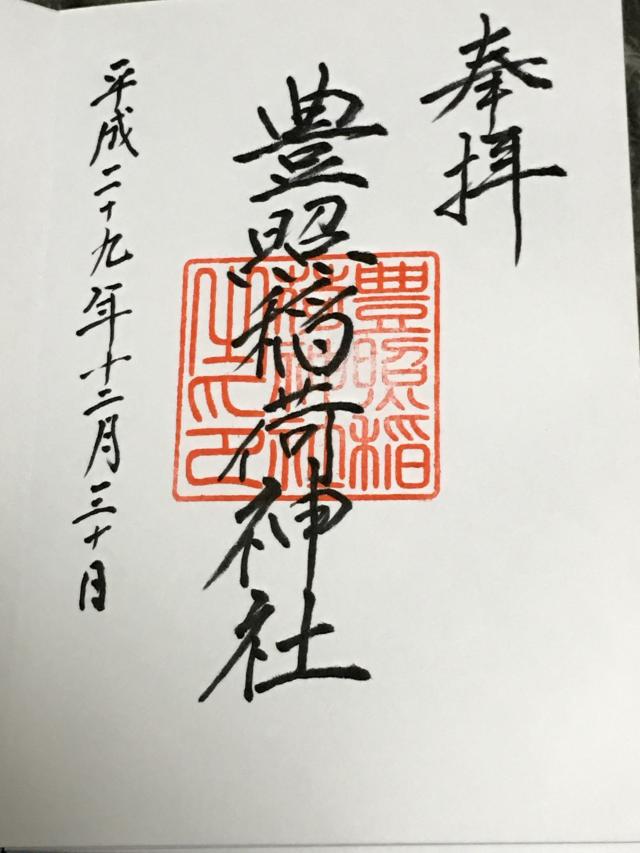 奉拝
豊照稲荷神社
豊照稲
荷神社
之印
平成二十九年十二月三十日